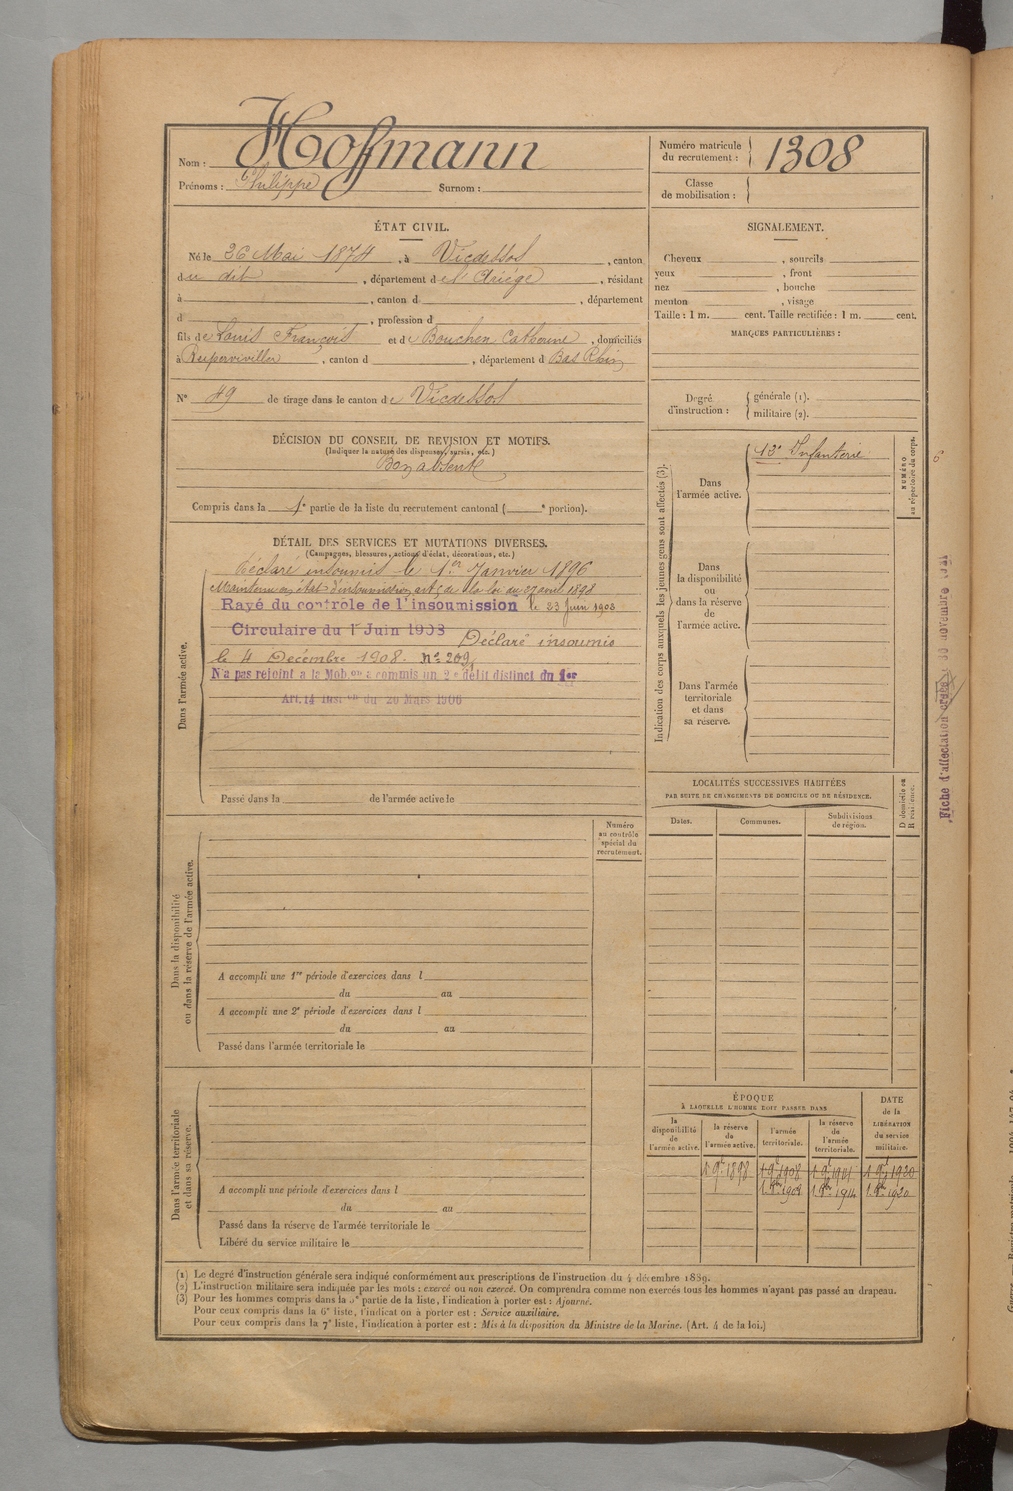 Nom : Hoffmann
Prénoms : Philippe Surnom :
Numéro matricule
du recrutement : 1308
Classe
de mobilisation :
ÉTAT CIVIL.
Né le 26 Mai 1874, à Vicdessos, canton
du dit, département de l'Ariège, résidant
à , canton d , département
d , profession d
fils de Louis François et de Bouchon Catherine, domiciliés
à , canton d , département d Bas Rhin
N° 49 de tirage dans le canton de Vicdessos
DÉCISION DU CONSEIL DE REVISION ET MOTIFS.
(Indiquer la nature des dispenses, sursis, etc.)
Bon absent
Compris dans la 1e partie de la liste du recrutement cantonal ( e portion).
DÉTAIL DES SERVICES ET MUTATIONS DIVERSES.
(Campagnes, blessures, actions d'éclat, décorations, etc.)
Dans l'armée active.
Déclaré insoumis le 1er Janvier 1896
Maintenu en état d'insoumission art. 5 de la loi du 27 avril 1898
Rayé du contrôle de l'insoumission le 23 Juin 1903
Circulaire du 1r Juin 1903 Déclaré insoumis
le 4 Décembre 1908. n° 209
N'a pas rejoint a la Mob.on a commis un 2e délit distinct du 1er
Art. 14 Inst.on du 20 Mars 1906
Passé dans la de l'armée active le
Dans la disponibilité
ou dans la réserve de l'armée active.
Numéro
au contrôle
spécial du
recrutement.
A accompli une 1re période d'exercices dans l
du au
A accompli une 2e période d'exercices dans l
du au
Passé dans l'armée territoriale le
Dans l'armée territoriale
et dans sa réserve.
A accompli une période d'exercices dans l
du au
Passé dans la réserve de l'armée territoriale le
Libéré du service militaire le
SIGNALEMENT.
Cheveux , sourcils
yeux , front
nez , bouche
menton , visage
Taille : 1 m. cent. Taille rectifiée : 1 m. cent.
MARQUES PARTICULIÈRES :
Degré
d'instruction :
générale (1).
militaire (2).
Indication des corps auxquels les jeunes gens sont affectés (3).
NUMÉRO
au répertoire du corps.
Dans
l'armée active.
13e Infanterie
Dans
la disponibilité
ou
dans la réserve
de
l'armée active.
Dans l'armée
territoriale
et dans
sa réserve.
LOCALITÉS SUCCESSIVES HABITÉES
PAR SUITE DE CHANGEMENTS DE DOMICILE OU DE RÉSIDENCE.
Dates.
Communes.
Subdivisions
de région.
D domicile ou
R résidence.
ÉPOQUE
À LAQUELLE L'HOMME DOIT PASSER DANS
DATE
de la
LIBÉRATION
du service
militaire.
la
disponibilité
de
l'armée active.
la réserve
de
l'armée active.
l'armée
territoriale.
la réserve
de
l'armée
territoriale.
1 9bre 1898 1 9bre 1908 1 9bre 1920
1 8bre 1908 1 8bre 1914 1 8bre 1920
Fiche d'affectation 30 novembre
(1) Le degré d'instruction générale sera indiqué conformément aux prescriptions de l'instruction du 4 décembre 1889.
(2) L'instruction militaire sera indiquée par les mots : exercé ou non exercé. On comprendra comme non exercés tous les hommes n'ayant pas passé au drapeau.
(3) Pour les hommes compris dans la 5e partie de la liste, l'indication à porter est : Ajourné.
Pour ceux compris dans la 6e liste, l'indication à porter est : Service auxiliaire.
Pour ceux compris dans la 7e liste, l'indication à porter est : Mis à la disposition du Ministre de la Marine. (Art. 4 de la loi.)